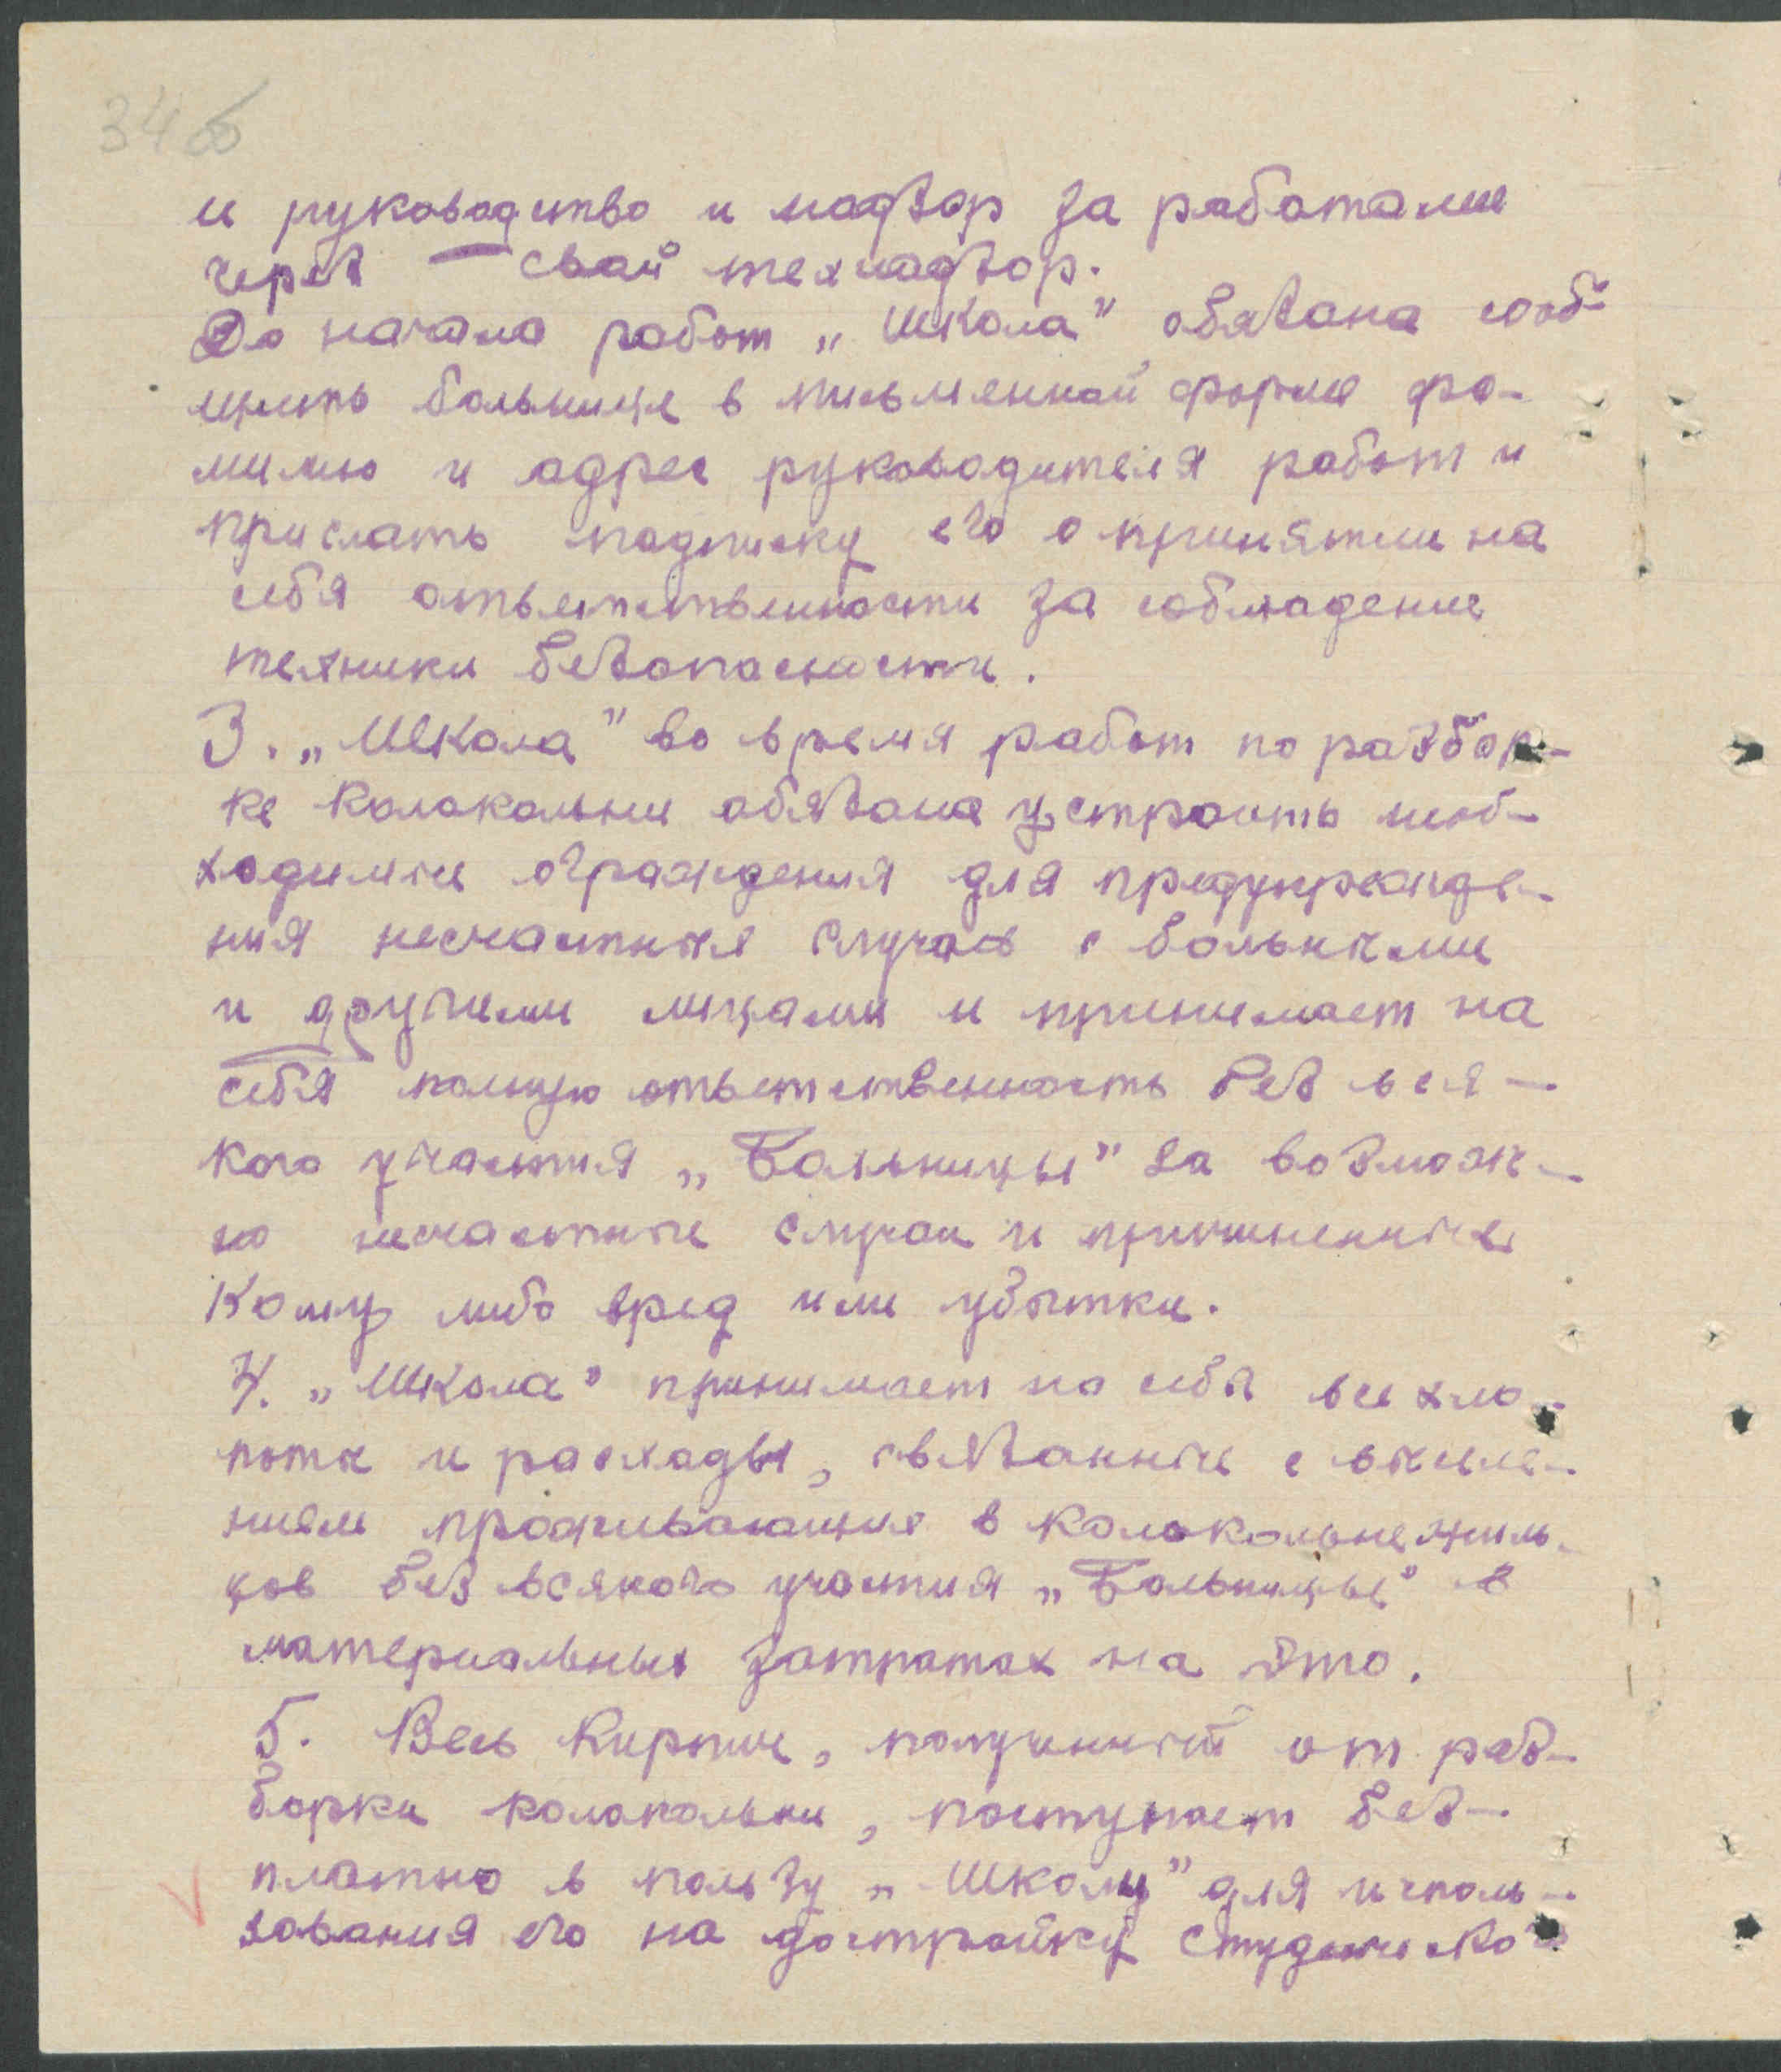 34 об
и руководство и надзор за работами
через свой технадзор.
До начала работ „Школа" обязана сооб-
щить больнице в письменной форме фа-
милию и адрес руководителя работ и
прислать подписку его о принятии на
себя ответственности за соблюдение
техники безопасности.
3. „Школа" во время работ по разбор-
ке колокольни обязана устроить необ-
ходимые ограждения для предупрежде-
ния несчастных случаев с больными
и другими лицами и принимает на
себя полную ответственность без вся-
кого участия „Больницы" за возмож-
но несчастные случаи и причиненные
кому либо вред или убытки.
4. „Школа" принимает на себя все хло-
поты и расходы, связанные с выселе-
нием проживающих в колокольне жиль-
цов без всякого участия „Больницы" в
материальных затратах на это.
5. Весь кирпич, полученный от раз-
борки колокольни, поступает без-
платно в пользу „Школы" для исполь-
зования его на достройку студенческой